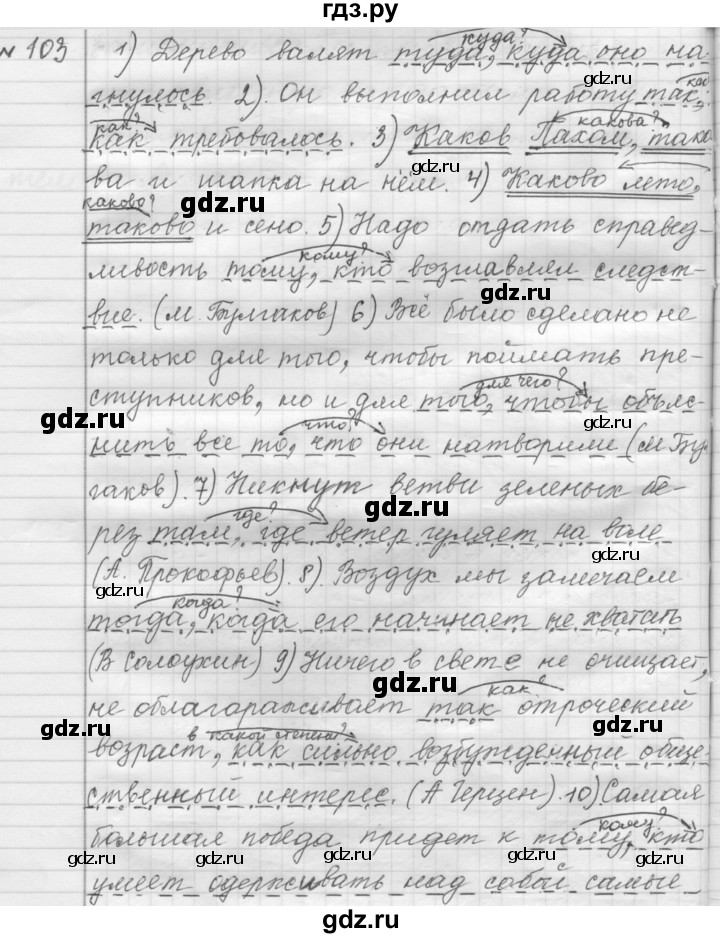 гдз.ру
куда?
№ 103 1) Дерево валят туда, куда оно на-
gdz.ru
гнулось. 2). Он выполнил работу так,
как?
как? какова?
как требовалось. 3) Каков Пахом, тако-
gdz.ru
ва и шапка на нём. 4) Каково лето,
каково? gdz.ru
таково и сено. 5) Надо отдать справед-
кому?
ливость тому, кто возглавлял следст-
gdz.ru
вие. (М. Булгаков) 6) Всё было сделано не
только для того, чтобы поймать пре-
для чего?
ступников, но и для того, чтобы объяс-
gdz.ru что?
нить все то, что они натворили (М Бу
гаков). 7) Никнут ветви зеленых бе-
где? gdz.ru
рез там, где ветер гуляет на воле
gdz.ru
(А. Прокофьев). 8) Воздух мы замечаем
когда?
тогда, когда его начинает не хватать
(В Солоухин) 9) Ничего в свете не очищает,
gdz.ru как?
не облагораживает так отроческий
gdz.ru в какой степени? gdz.ru
возраст, как сильно возбужденный обще-
ственный интерес. (А Герцен). 10) Самая
кому?
большая победа придет к тому, кто
gdz.ru gdz.ru gdz.ru
умеет одерживать над собой самые
гдз.ру